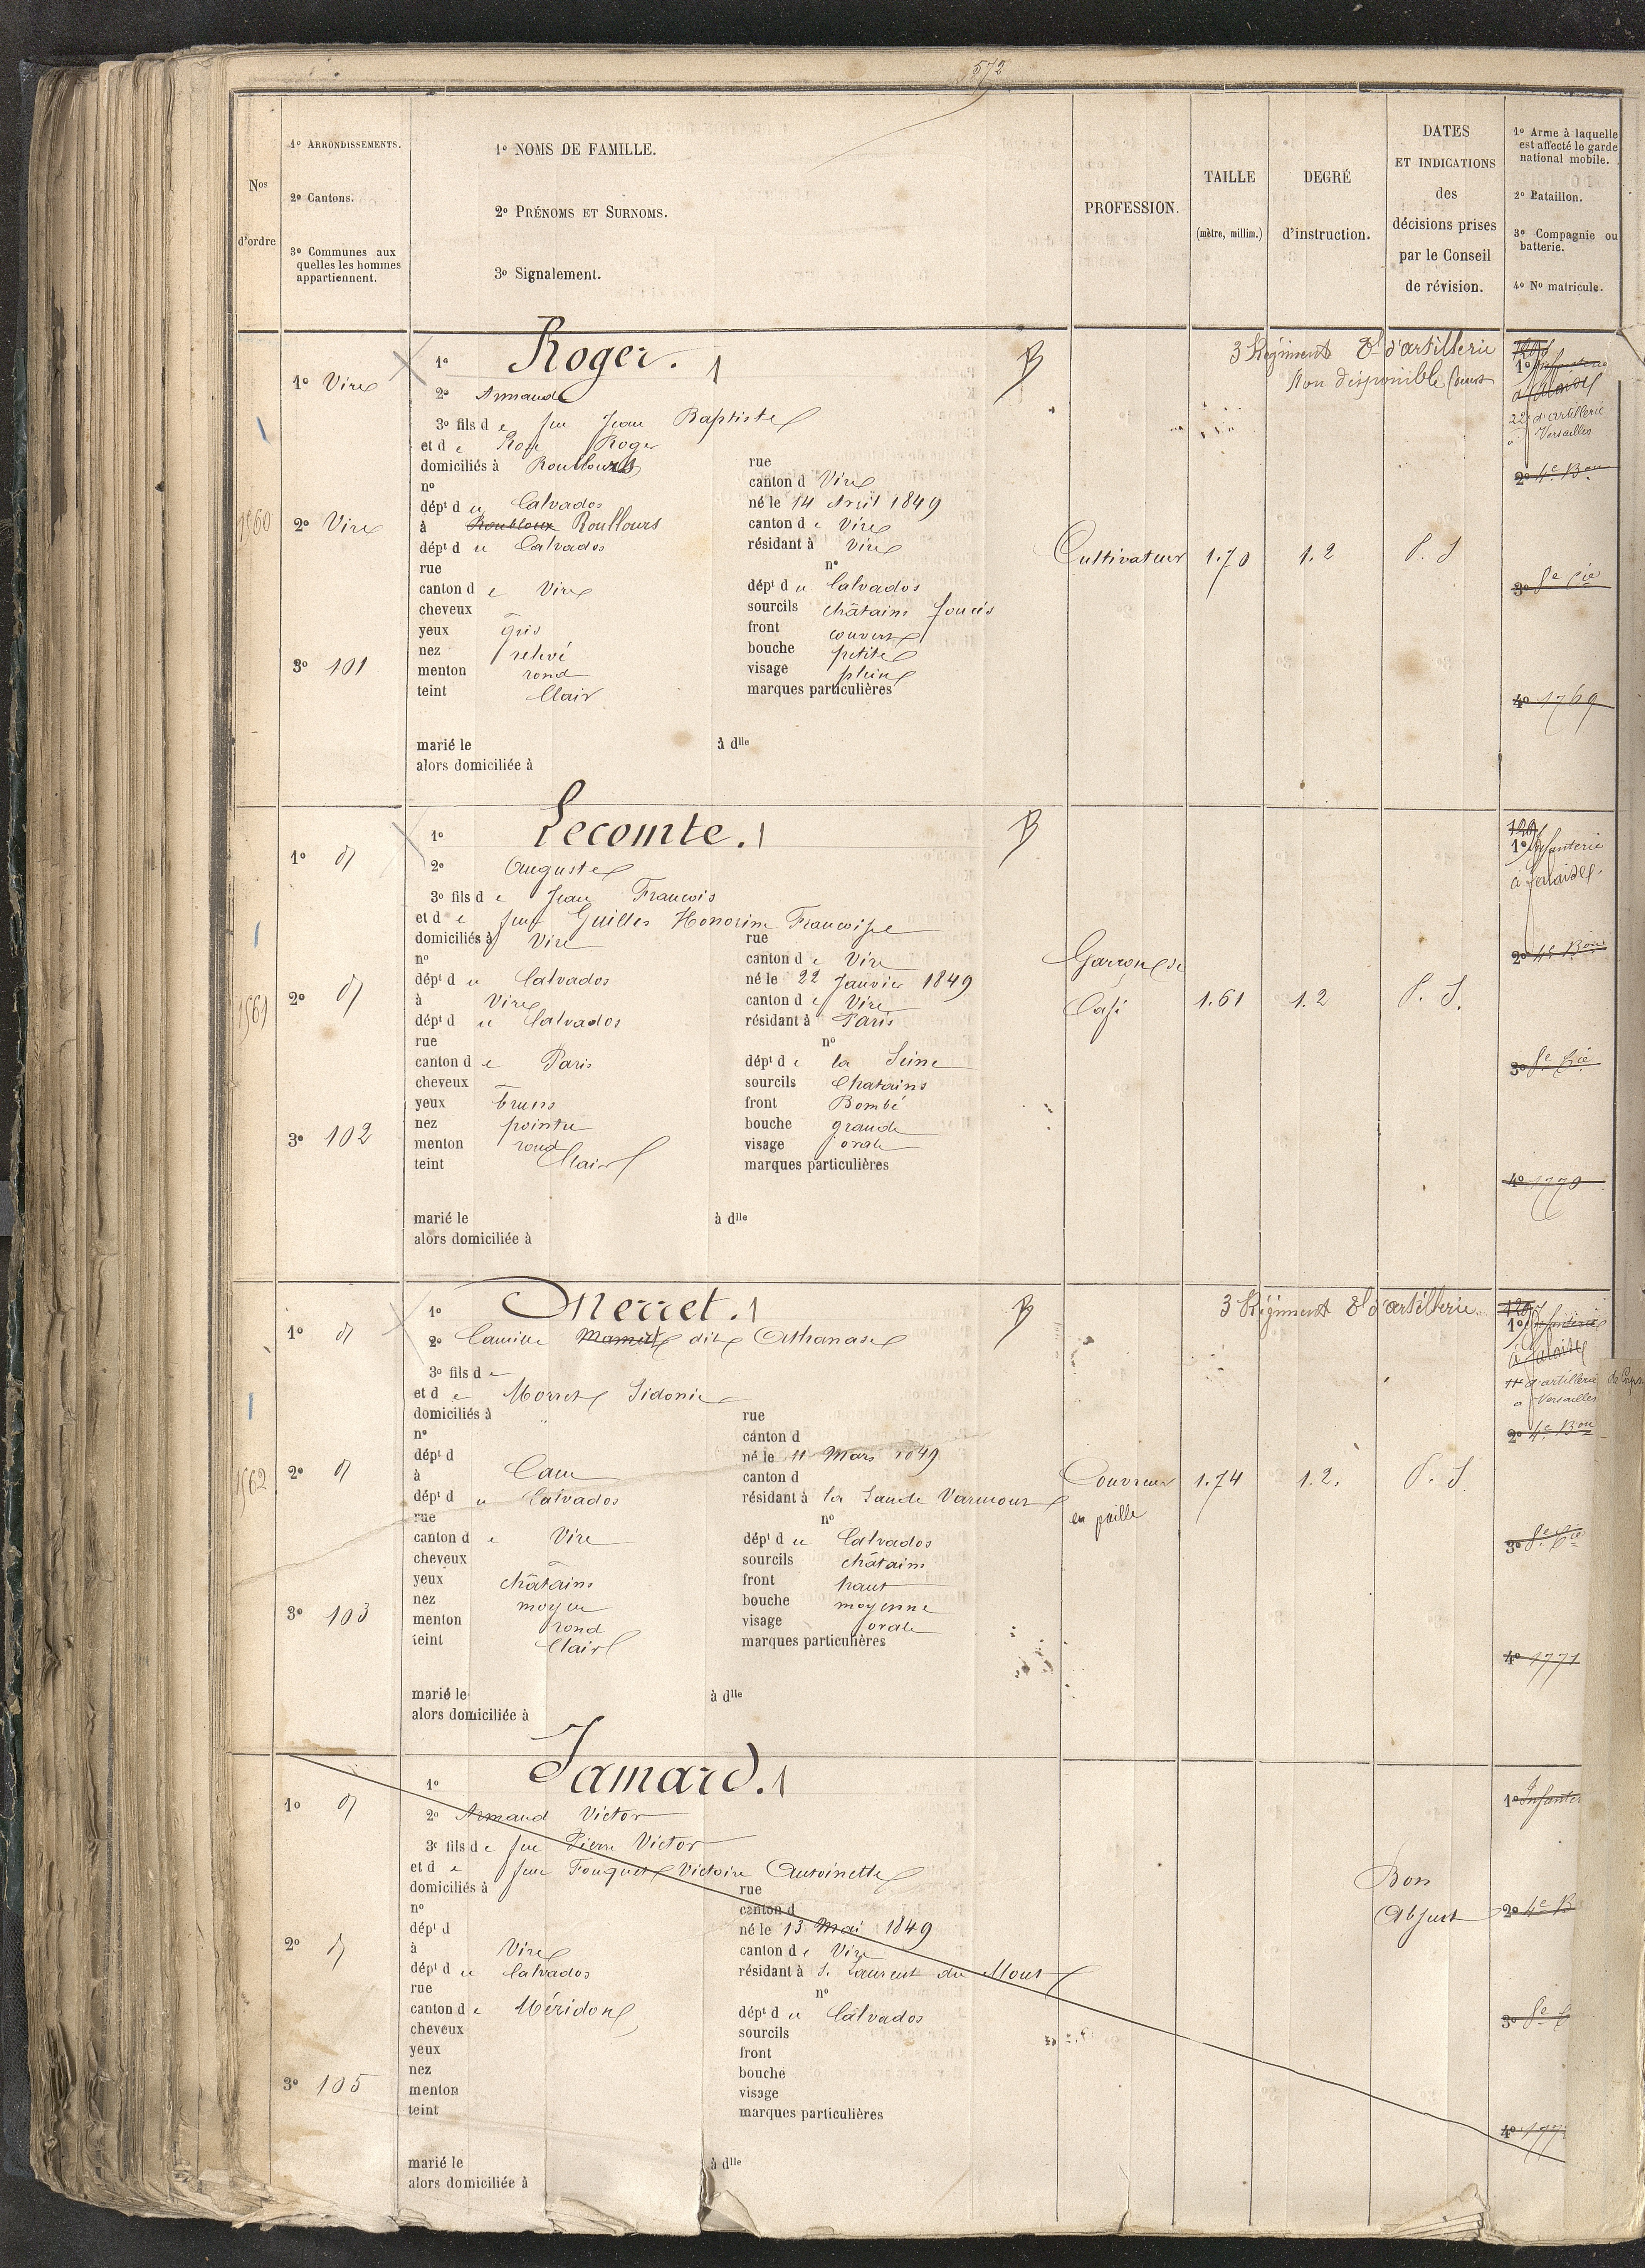 572
Nos
d'ordre
1o ARRONDISSEMENTS.
2o Cantons.
3o Communes aux
quelles les hommes
appartiennent.
1o NOMS DE FAMILLE.
2o PRÉNOMS ET SURNOMS.
3o Signalement.
PROFESSION.
TAILLE
(mètre, millim.)
DEGRÉ
d'instruction.
DATES
ET INDICATIONS
des
décisions prises
par le Conseil
de révision.
1o Arme à laquelle
est affecté le garde
national mobile.
2o Bataillon.
3o Compagnie ou
batterie.
4o No matricule.
1560
1o Vire
2o Vire
3o 101
1o Roger. 1 B
2o Armand
3o fils de feu Jean Baptiste
et de Rose Roger
domiciliés à Roullours rue
no canton d Vire
dépt du Calvados né le 14 Avril 1849
à Roulloux Roullours canton de Vire
dépt du Calvados résidant à Vire
rue no
canton de Vire dépt du Calvados
cheveux sourcils châtains foncés
yeux gris front couvert
nez relevé bouche petite
menton rond visage plein
teint Clair marques particulières
marié le à dlle
alors domiciliée à
Cultivateur 1.70 1.2 P. S
3 Régiment d'artillerie
Non disponible
1o Infanterie
à Falaise
22e d'artillerie
à Versailles
2o 4e Bon
3o 8e Cie
4o 1769
1561
1o d
2o d
3o 102
1o Lecomte. 1 B
2o Auguste
3o fils de Jean Francois
et de feue Guilles Honorine Francoise
domiciliés à Vire rue
no canton de Vire
dépt du Calvados né le 22 Janvier 1849
à Vire canton de Vire
dépt du Calvados résidant à Paris
rue no
canton de Paris dépt de la Seine
cheveux sourcils Chatains
yeux bruns front Bombé
nez pointu bouche grande
menton rond visage ovale
teint Clair marques particulières
marié le à dlle
alors domiciliée à
Garcon de
Café
1.61 1.2 P. S.
1o Infanterie
à Falaise.
2o 4e Bon
3o 8e Cie
4o 1770
1562
1o d
2o d
3o 103
1o Merret. 1 B
2o Camille dit Athanase
3o fils de
et de Morret Sidonie
domiciliés à rue
no canton d
dépt d né le 11 Mars 1849
à Caen canton d
dépt du Calvados résidant à la Lande Vaumont
rue no
canton de Vire dépt du Calvados
cheveux sourcils châtains
yeux châtains front haut
nez moyen bouche moyenne
menton rond visage ovale
teint Clair marques particulières
marié le à dlle
alors domiciliée à
Couvreur
en paille
1.74 1.2. P. S
3 Régiment d'artillerie
1o Infanterie
à Falaise
d'artillerie
à Versailles
2o 4e Bon
3o 8e Cie
4o 1771
de Corps
1o d
2o d
3o 105
1o Jamard. 1
2o Armand Victor
3o fils de feu Pierre Victor
et de feue Fouquet Victoire Antoinette
domiciliés à rue
no canton d
dépt d né le 13 Mai 1849
à Vire canton de Vire
dépt du Calvados résidant à S. Laurent du Mont
rue no
canton de Méridon dépt du Calvados
cheveux sourcils
yeux front
nez bouche
menton visage
teint marques particulières
marié le à dlle
alors domiciliée à
Bon
Absent
1o Infanter
2o 4e B
3o 8e C
4o 177